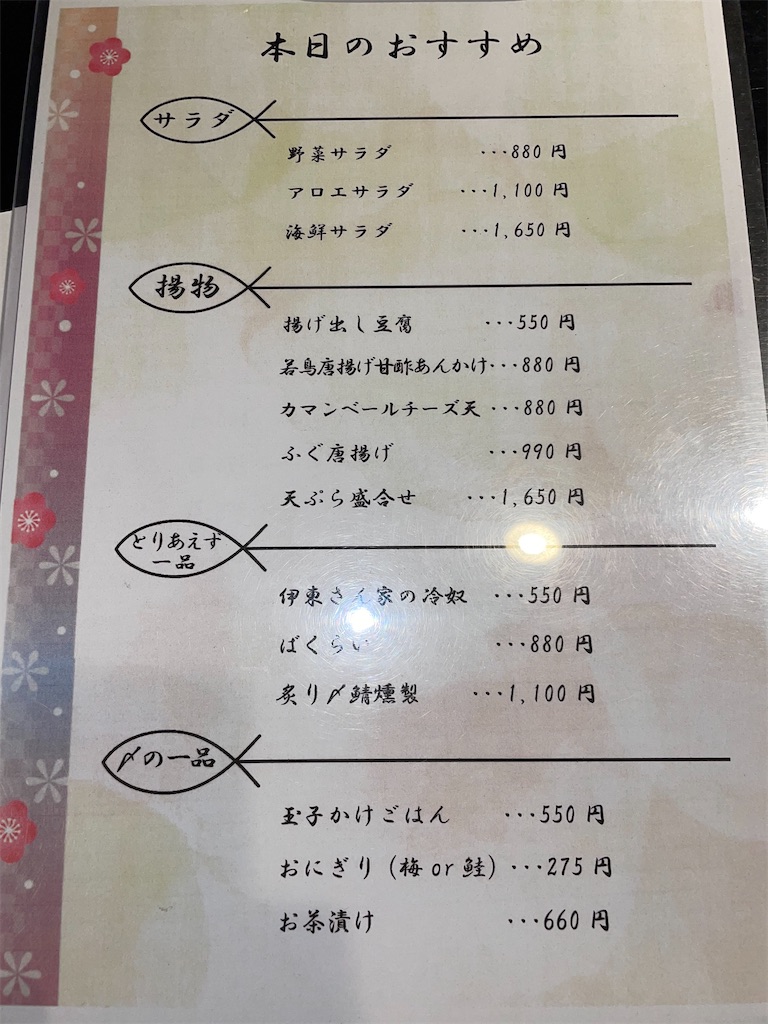 本日のおすすめ
サラダ
野菜サラダ ･･･880 円
アロエサラダ ･･･1,100 円
海鮮サラダ ･･･1,650 円
揚物
揚げ出し豆腐 ･･･550 円
若鳥唐揚げ甘酢あんかけ･･･880 円
カマンベールチーズ天 ･･･880 円
ふぐ唐揚げ ･･･990 円
天ぷら盛合せ ･･･1,650 円
とりあえず
一品
伊東さん家の冷奴 ･･･550 円
ばくらい ･･･880 円
炙り〆鯖燻製 ･･･1,100 円
〆の一品
玉子かけごはん ･･･550 円
おにぎり (梅 or 鮭) ･･･275 円
お茶漬け ･･･660 円